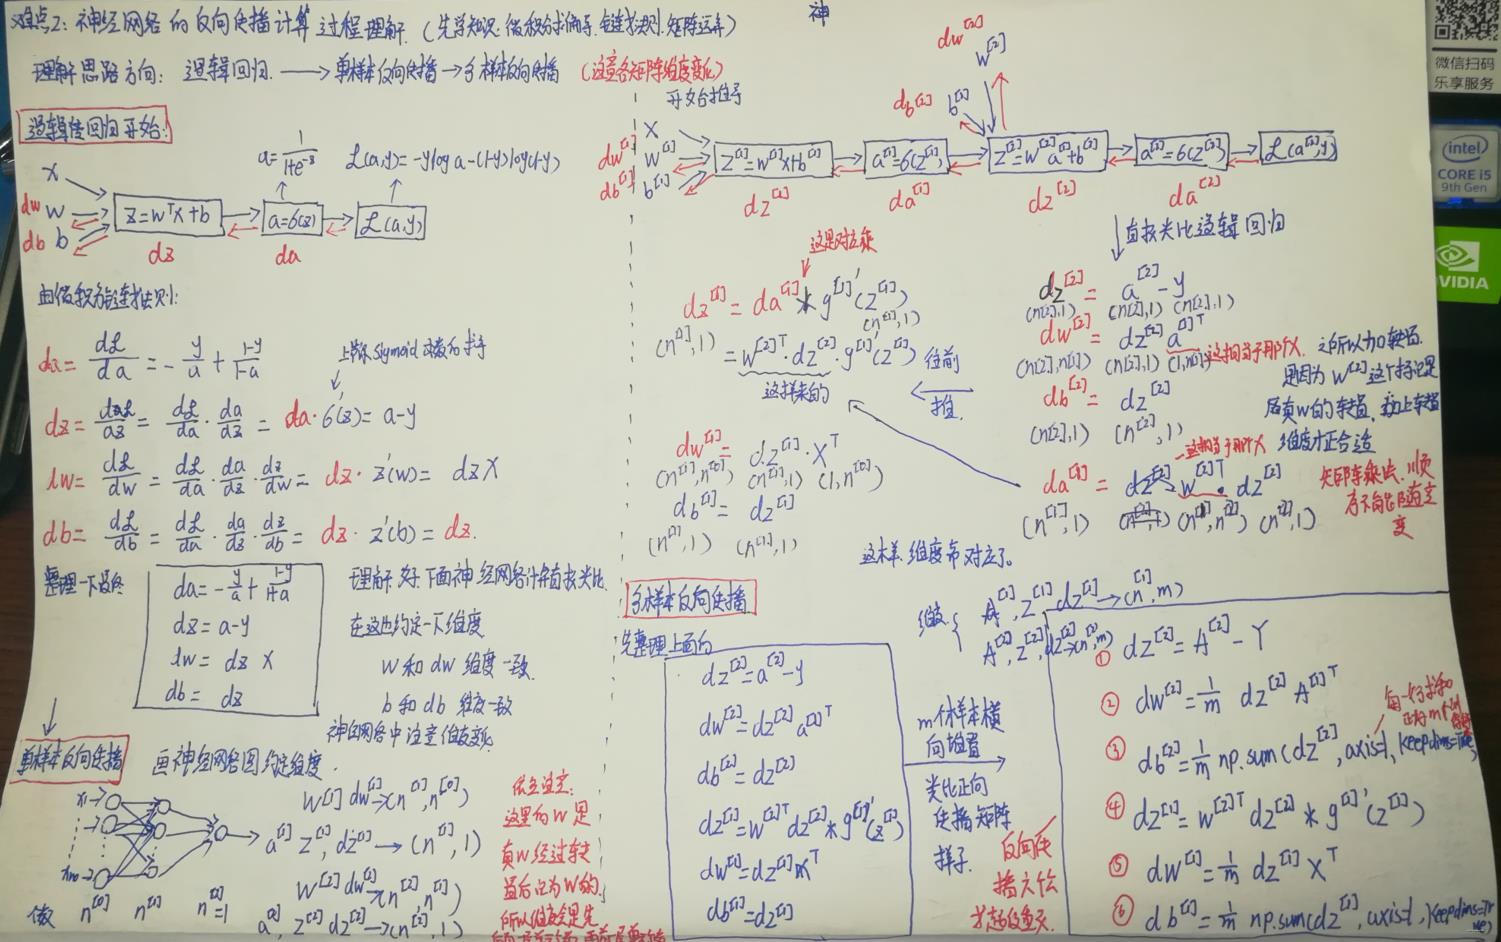 难点2: 神经网络的反向传播计算过程理解. (先学知识: 微积分求偏导、链式法则、矩阵运算)
神
理解思路方向: 逻辑回归. → 单样本反向传播 → 多样本反向传播 (注意各矩阵维度变化)
逻辑回归开始:
a = 1/(1+e^-z)
L(a,y) = -y log a - (1-y) log(1-y)
x
dw w
db b
z = w^T x + b
a = б(z)
L(a,y)
dz
da
由微积分链式法则:
da = dL/da = -y/a + (1-y)/(1-a)
dz = dL/dz = dL/da · da/dz = da · б(z) = a-y
dw = dL/dw = dL/da · da/dz · dz/dw = dz · z'(w) = dz X
db = dL/db = dL/da · da/dz · dz/db = dz · z'(b) = dz.
整理一下
da = -y/a + (1-y)/(1+a)
dz = a-y
dw = dz X
db = dz
理解好, 下面神经网络计算直接类比
在这也约定一下维度
w 和 dw 维度一致.
b 和 db 维度一致
神经网络中注意维度变化
单样本反向传播
画神经网络图约定维度.
n^[0] n^[1] n^[2]=1
W^[1] dw^[1] → (n^[1], n^[0])
a^[1] z^[1], dz^[1] → (n^[1], 1)
W^[2] dw^[2] → (n^[2], n^[1])
a^[2], z^[2] dz^[2] → (n^[2], 1)
这里的 W 是
真 W 经过转
置后记为 W 的.
开始推导
dw^[2]
w^[2]
db^[2] b^[2]
x
dw^[1] w^[1]
db^[1] b^[1]
z^[1] = w^[1]x + b^[1]
a^[1] = б(z^[1])
z^[2] = w^[2]a^[1] + b^[2]
a^[2] = б(z^[2])
L(a^[2], y)
dz^[1]
da^[1]
dz^[2]
da^[2]
直接类比逻辑回归
dz^[2] = a^[2] - y
(n[2],1) (n[2],1) (n[2],1)
dw^[2] = dz^[2] a^[1]T
(n[2],n[1]) (n[2],1) (1,n[1])
这相当于那个x.
之所以加转置
是因为 W^[2] 这个标记是
原真w的转置, 加上转置
维度才正合适
db^[2] = dz^[2]
(n[2],1) (n^[2],1)
这相当于那个x
da^[1] = w^[2]T · dz^[2]
(n^[1],1) (n^[1],n^[2]) (n^[2],1)
矩阵乘法, 顺
序不能随意
变
这样, 维度都对应了。
往前
推.
这是对应乘
dz^[1] = da^[1] * g^[1]'(z^[1])
(n^[1],1)
(n^[1],1) = w^[2]T · dz^[2] · g^[1]'(z^[1])
这样来的
dw^[1] = dz^[1] · X^T
(n^[1],n^[0]) (n^[1],1) (1,n^[0])
db^[1] = dz^[1]
(n^[1],1) (n^[1],1)
多样本反向传播
先整理上面的
dz^[2] = a^[2] - y
dw^[2] = dz^[2] a^[1]T
db^[2] = dz^[2]
dz^[1] = w^[2]T dz^[2] * g^[1]'(z^[1])
dw^[1] = dz^[1] X^T
db^[1] = dz^[1]
m个样本横
向堆置
类比正向
传播矩阵
样子.
维度 { A^[1], Z^[1] dz^[1] → (n^[1], m)
A^[2], Z^[2], dz^[2] → (n^[2], m)
① dz^[2] = A^[2] - Y
② dw^[2] = 1/m dz^[2] A^[1]T
③ db^[2] = 1/m np.sum(dz^[2], axis=1, keepdims=True)
④ dz^[1] = w^[2]T dz^[2] * g^[1]'(z^[1])
⑤ dw^[1] = 1/m dz^[1] X^T
⑥ db^[1] = 1/m np.sum(dz^[1], axis=1, keepdims=True)
反向传
播六个
微信扫码
乐享服务
intel
CORE i5
9th Gen
NVIDIA